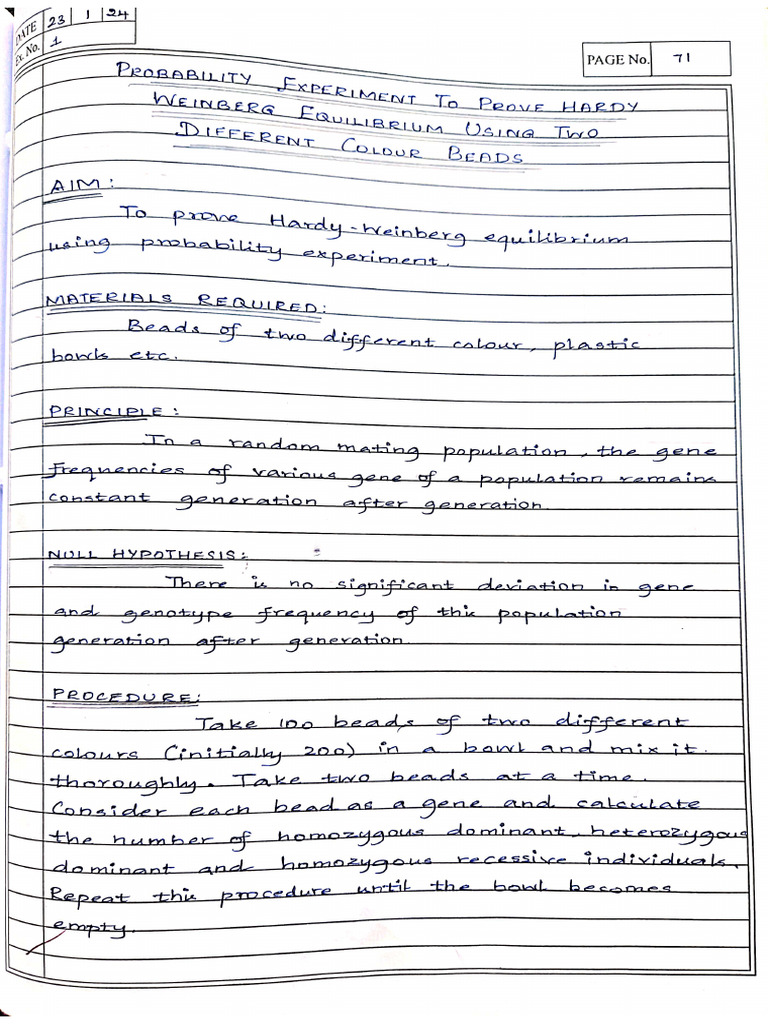 DATE 23 1 24
Ex. No. 1
PAGE No. 71
PROBABILITY EXPERIMENT TO PROVE HARDY
WEINBERG EQUILIBRIUM USING TWO
DIFFERENT COLOUR BEADS
AIM:
To prove Hardy-Weinberg equilibrium
using probability experiment.
MATERIALS REQUIRED:
Beads of two different colour, plastic
bowls etc.
PRINCIPLE:
In a random mating population, the gene
frequencies of various gene of a population remains
constant generation after generation.
NULL HYPOTHESIS:
There is no significant deviation in gene
and genotype frequency of this population
generation after generation.
PROCEDURE:
Take 100 beads of two different
colours (initially 200) in a bowl and mix it
thoroughly. Take two beads at a time.
Consider each bead as a gene and calculate
the number of homozygous dominant, heterozygous
dominant and homozygous recessive individuals.
Repeat this procedure until the bowl becomes
empty.